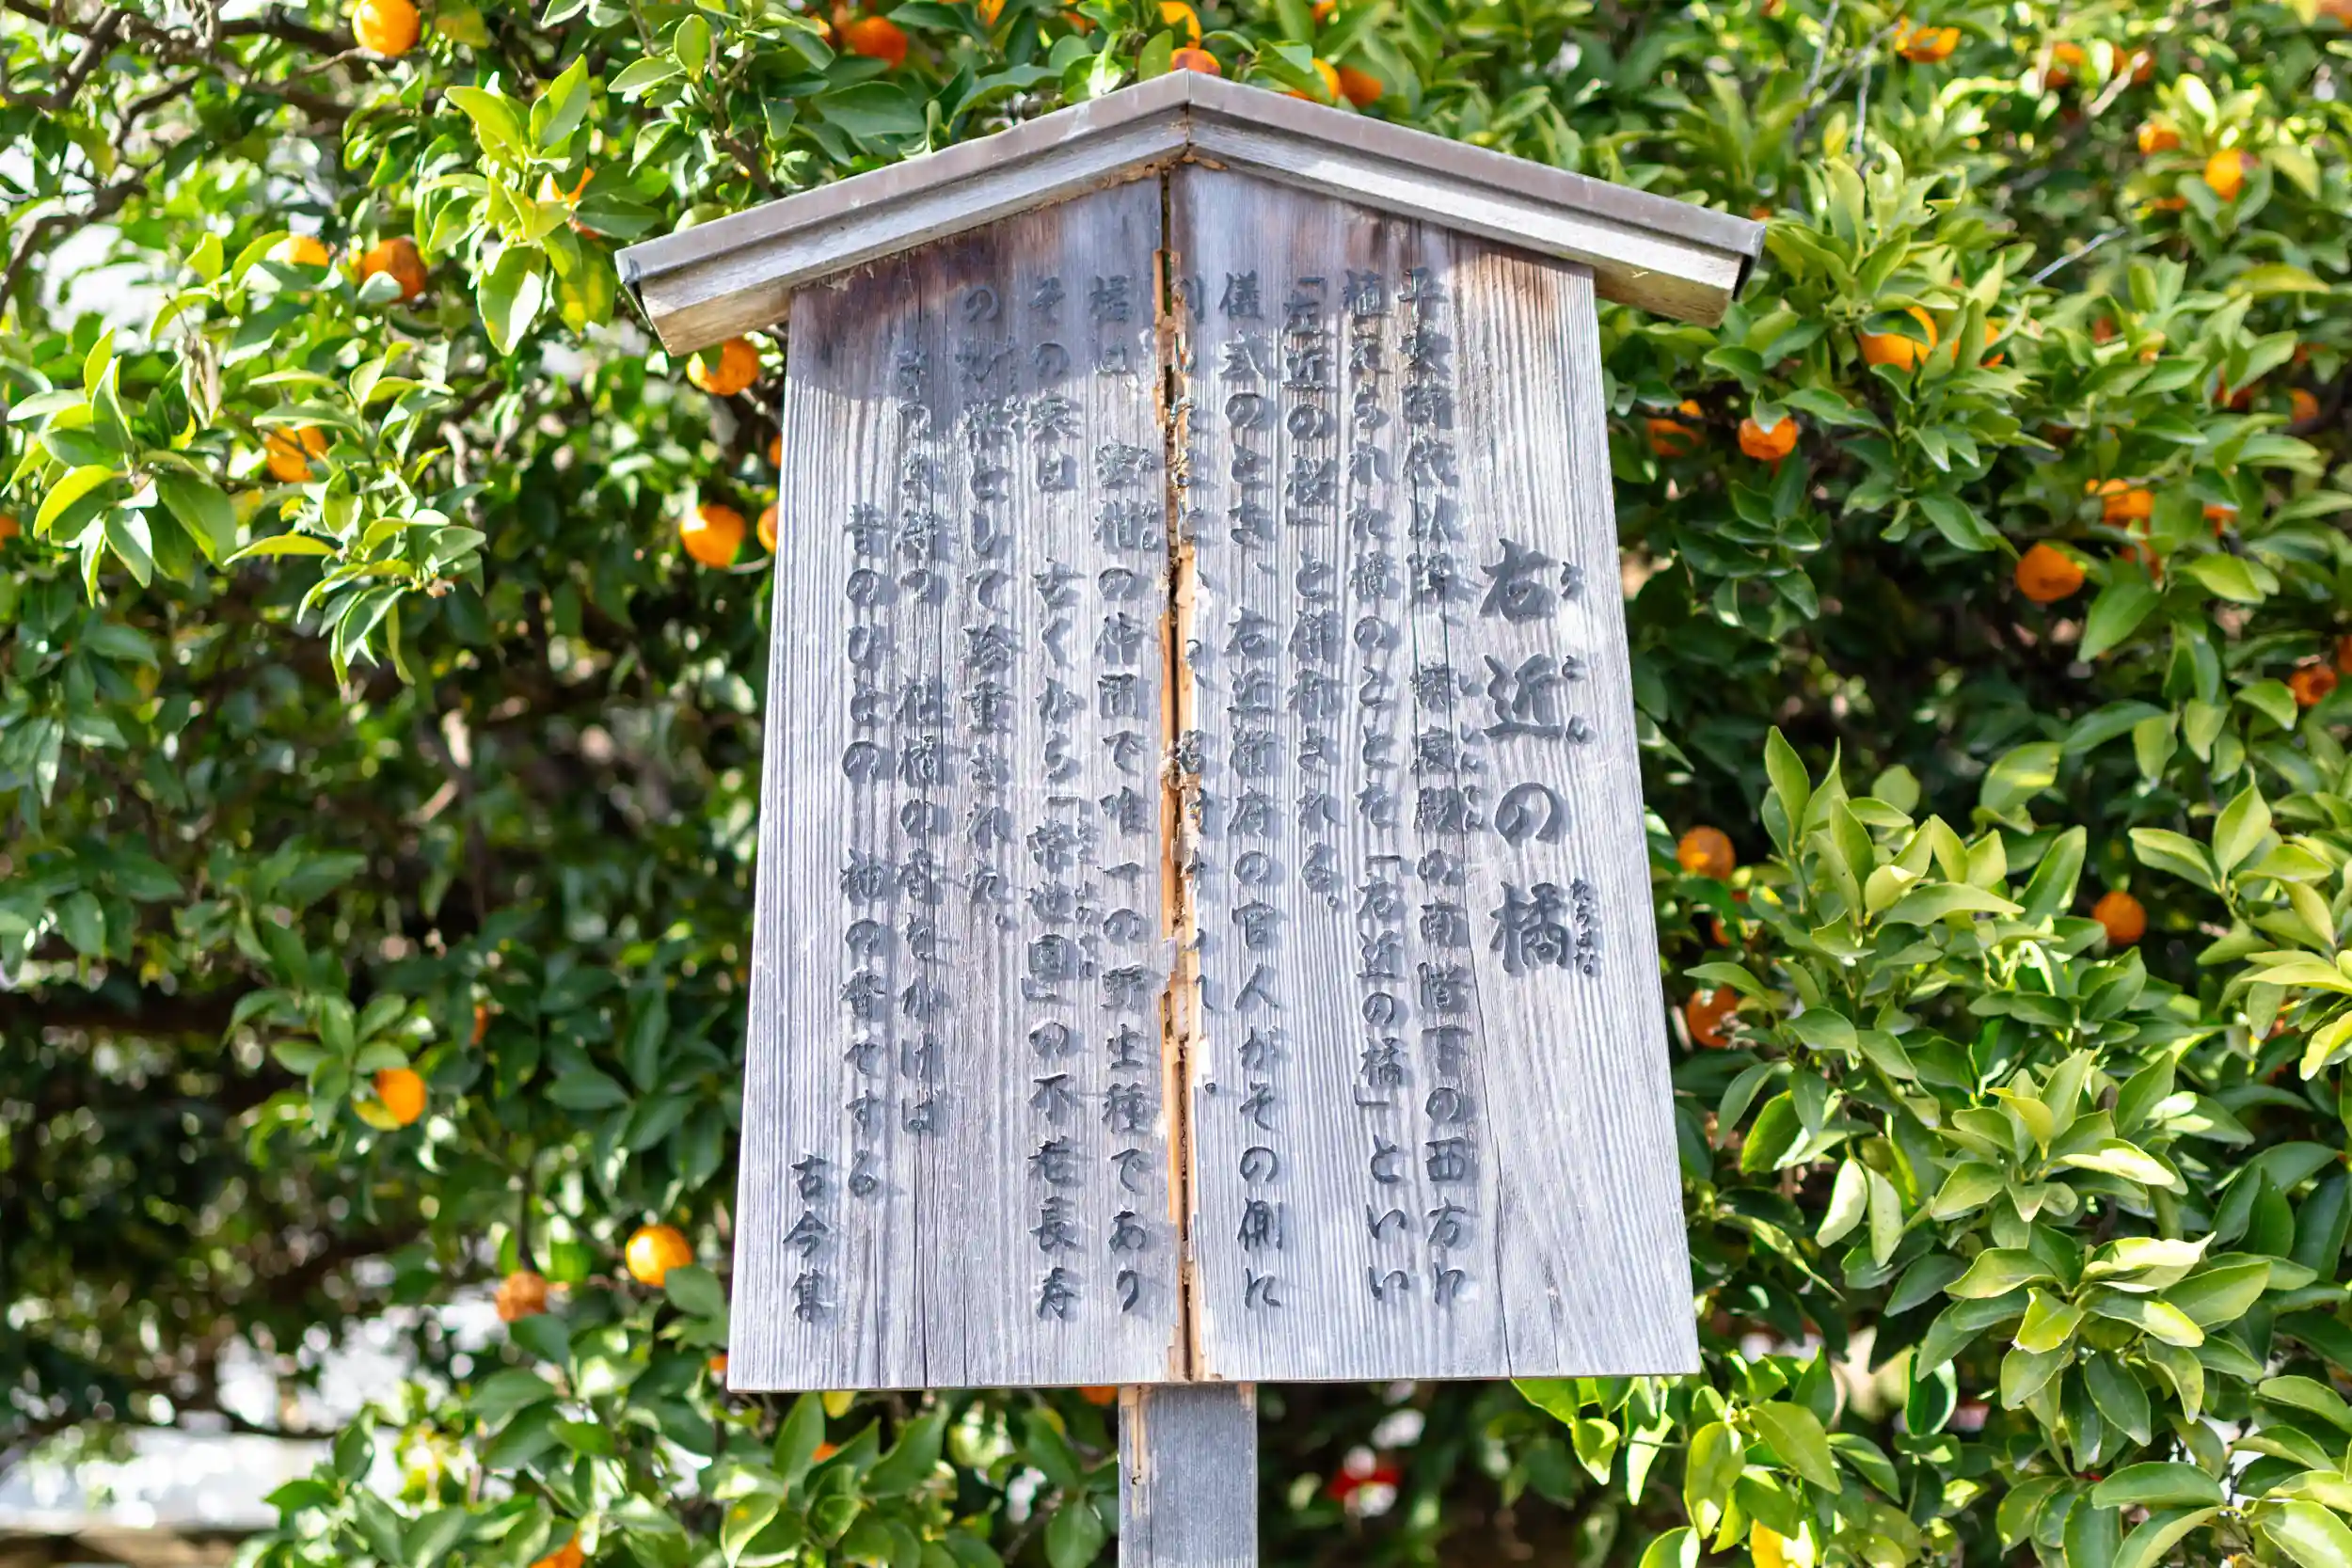 右近の橘
うこん
たちばな
平安時代以降、紫宸殿の南階下の西方に
ししんでん
植えられた橘のことを「右近の橘」といい
「左近の桜」と併称される。
儀式のとき、右近衛府の官人がその側に
橘は、蜜柑の仲間で唯一の野生種であり
みかん
その実は、古くから「常世国」の不老長寿
とこよのくに
の妙薬として珍重された。
さつき待つ 花橘の香をかげば
昔のひとの 袖の香ぞする
古今集